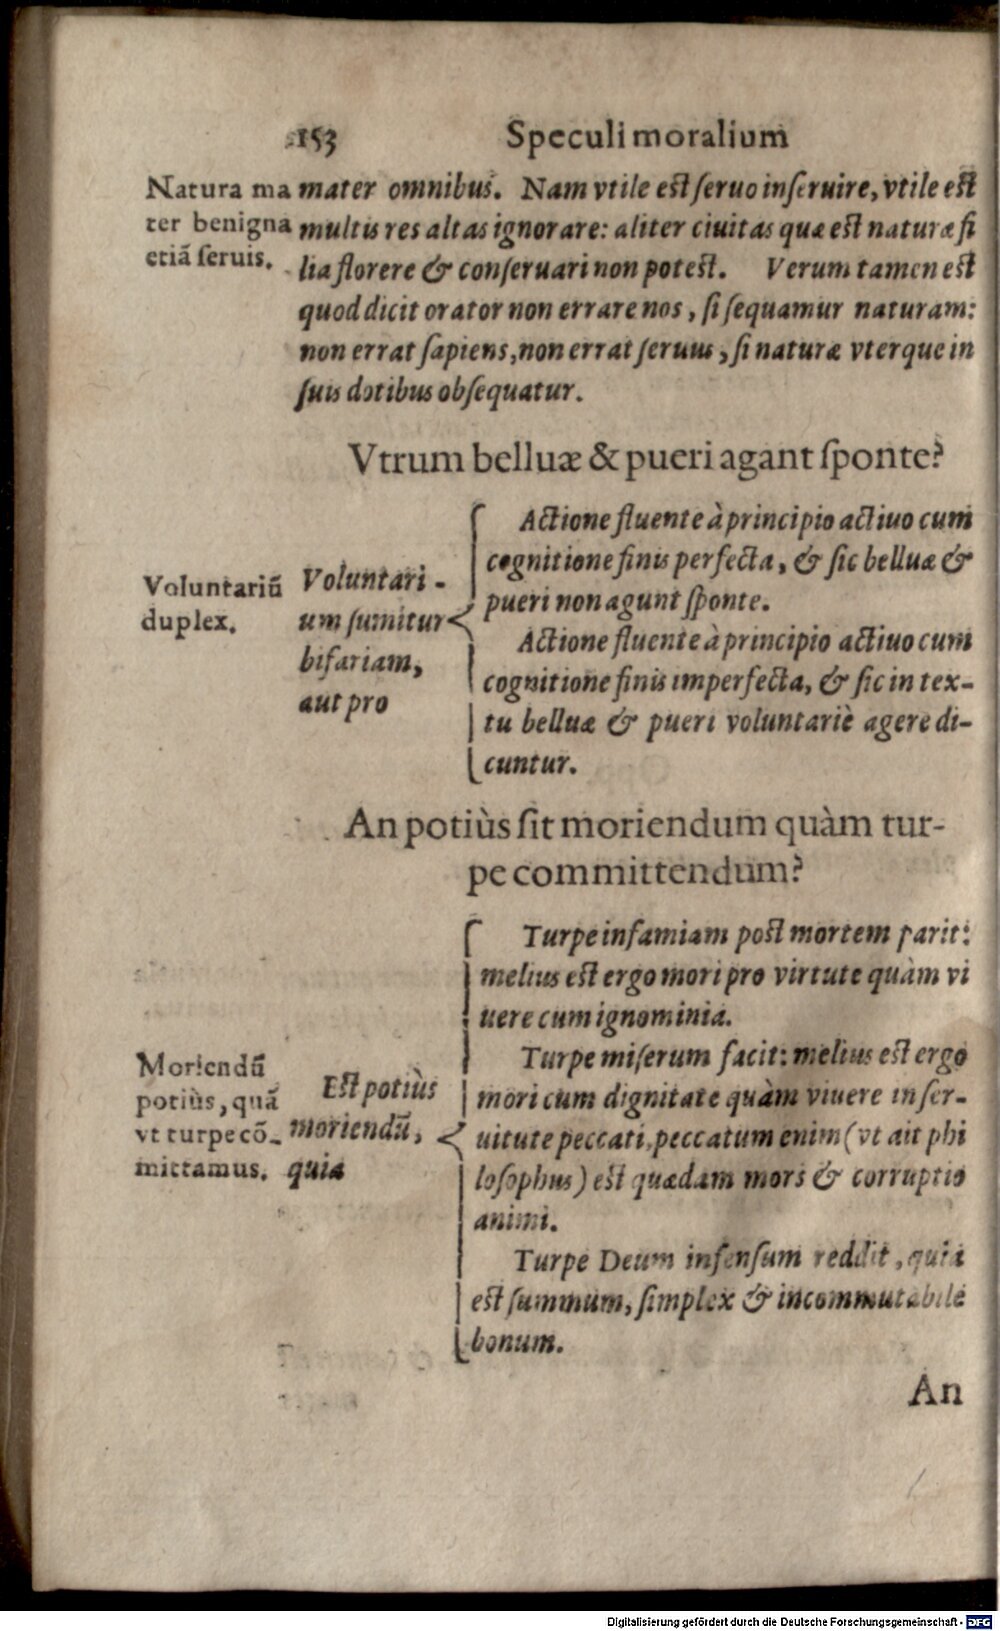 153 Speculi moralium
Natura ma
ter benigna
etiā ſeruis.
mater omnibus. Nam vtile eſt ſeruo inſeruire, vtile eſt
multis res altas ignorare: aliter ciuitas quæ eſt naturæ fi
lia florere & conſeruari non poteſt. Verum tamen eſt
quod dicit orator non errare nos, ſi ſequamur naturam:
non errat ſapiens, non errat ſeruus, ſi naturæ vterque in
ſuis dotibus obſequatur.
Vtrum belluæ & pueri agant ſponte?
Voluntariū
duplex.
Voluntari-
um ſumitur
bifariam,
aut pro
Actione fluente à principio actiuo cum
cognitione finis perfecta, & ſic belluæ &
pueri non agunt ſponte.
Actione fluente à principio actiuo cum
cognitione finis imperfecta, & ſic in tex-
tu belluæ & pueri voluntariè agere di-
cuntur.
An potiùs ſit moriendum quàm tur-
pe committendum?
Moriendū
potiùs, quā
vt turpe cō-
mittamus.
Eſt potiùs
moriendū,
quia
Turpe infamiam poſt mortem parit:
melius eſt ergo mori pro virtute quàm vi
uere cum ignominia.
Turpe miſerum facit: melius eſt ergo
mori cum dignitate quàm viuere in ſer-
uitute peccati, peccatum enim (vt ait phi
loſophus) eſt quædam mors & corruptio
animi.
Turpe Deum infenſum reddit, quia
eſt ſummum, ſimplex & incommutabile
bonum.
An
Digitalisierung gefördert durch die Deutsche Forschungsgemeinschaft - DFG